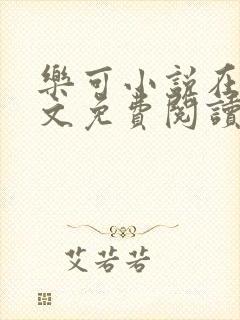 樂可小說在
文免費閱讀
艾若若